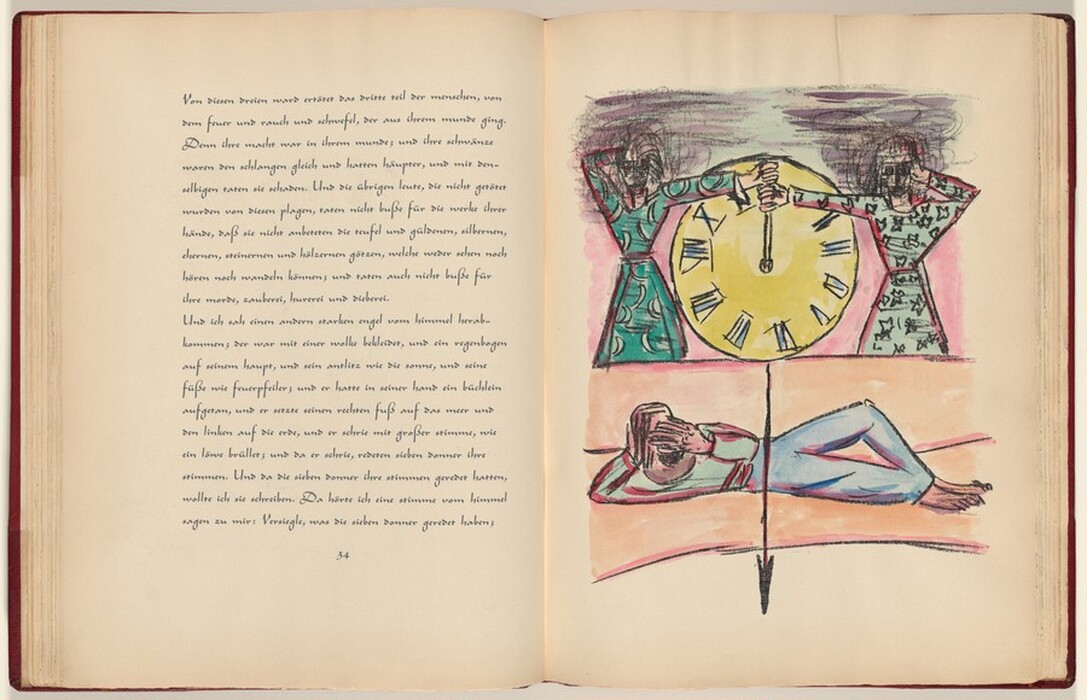 Von diesen dreien ward ertötet das dritte teil der menschen, von
dem feuer und rauch und schwefel, der aus ihrem munde ging.
Denn ihre macht war in ihrem munde; und ihre schwänze
waren den schlangen gleich und hatten häupter, und mit den-
selbigen taten sie schaden. Und die übrigen leute, die nicht getötet
wurden von diesen plagen, taten nicht buße für die werke ihrer
hände, daß sie nicht anbeteten die teufel und güldenen, silbernen,
ehernen, steinernen und hölzernen götzen, welche weder sehen noch
hören noch wandeln können; und taten auch nicht buße für
ihre morde, zauberei, hurerei und dieberei.
Und ich sah einen andern starken engel vom himmel herab-
kommen; der war mit einer wolke bekleidet, und ein regenbogen
auf seinem haupt, und sein antlitz wie die sonne, und seine
füße wie feuerpfeiler; und er hatte in seiner hand ein büchlein
aufgetan, und er setzte seinen rechten fuß auf das meer und
den linken auf die erde, und er schrie mit großer stimme, wie
ein löwe brüllet; und da er schrie, redeten sieben donner ihre
stimmen. Und da die sieben donner ihre stimmen geredet hatten,
wollte ich sie schreiben. Da hörte ich eine stimme vom himmel
sagen zu mir: Versiegle, was die sieben donner geredet haben;
34